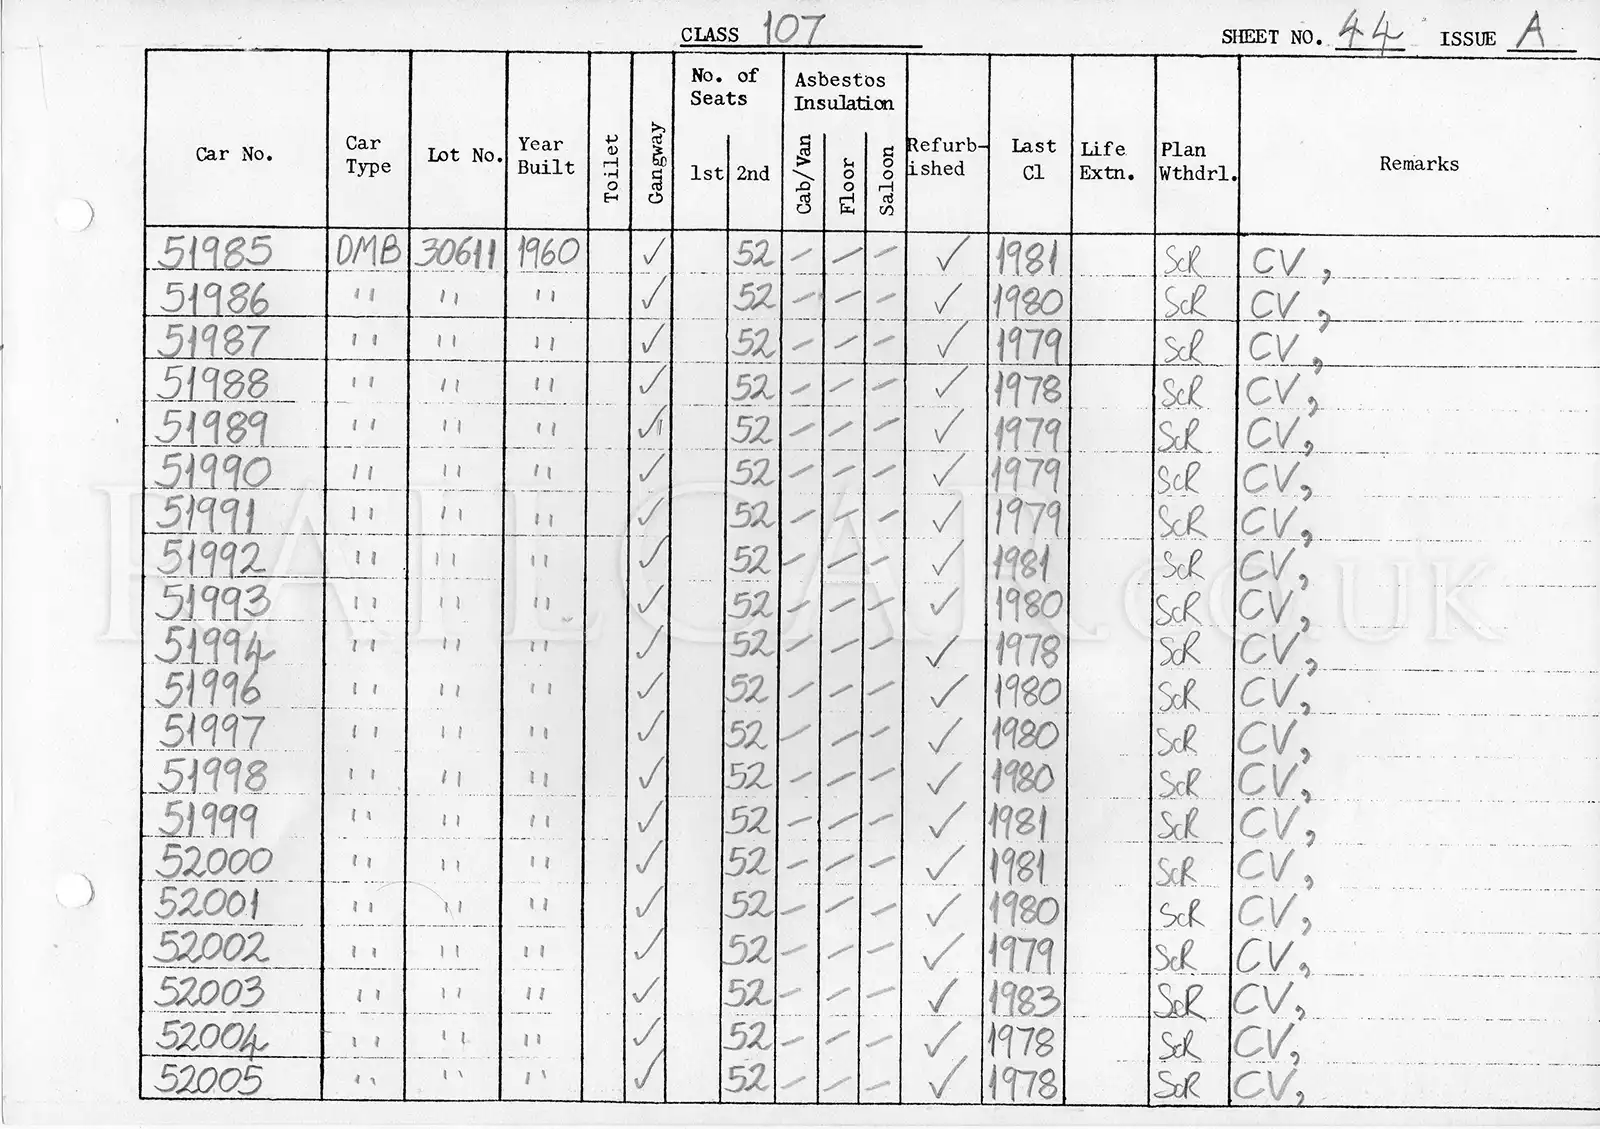 CLASS 107 SHEET NO. 44 ISSUE A
Car No. Car Type Lot No. Year Built Toilet Gangway No. of Seats 1st 2nd Asbestos Insulation Cab/Van Floor Saloon Refurb-ished Last Cl Life Extn. Plan Wthdrl. Remarks
51985 DMB 30611 1960 ✓ 52 — — — ✓ 1981 ScR CV,
51986 " " " ✓ 52 — — — ✓ 1980 ScR CV,
51987 " " " ✓ 52 — — — ✓ 1979 ScR CV,
51988 " " " ✓ 52 — — — ✓ 1978 ScR CV,
51989 " " " ✓ 52 — — — ✓ 1979 ScR CV,
51990 " " " ✓ 52 — — — ✓ 1979 ScR CV,
51991 " " " ✓ 52 — — — ✓ 1979 ScR CV,
51992 " " " ✓ 52 — — — ✓ 1981 ScR CV,
51993 " " " ✓ 52 — — — ✓ 1980 ScR CV,
51994 " " " ✓ 52 — — — ✓ 1978 ScR CV,
51996 " " " ✓ 52 — — — ✓ 1980 ScR CV,
51997 " " " ✓ 52 — — — ✓ 1980 ScR CV,
51998 " " " ✓ 52 — — — ✓ 1980 ScR CV,
51999 " " " ✓ 52 — — — ✓ 1981 ScR CV,
52000 " " " ✓ 52 — — — ✓ 1981 ScR CV,
52001 " " " ✓ 52 — — — ✓ 1980 ScR CV,
52002 " " " ✓ 52 — — — ✓ 1979 ScR CV,
52003 " " " ✓ 52 — — — ✓ 1983 ScR CV,
52004 " " " ✓ 52 — — — ✓ 1978 ScR CV,
52005 " " " ✓ 52 — — — ✓ 1978 ScR CV,
RAILCAR.co.uk